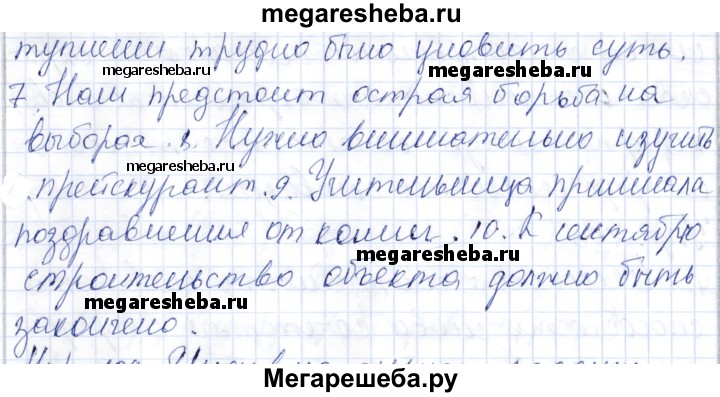 megaresheba.ru
туплении трудно было уловить суть.
megaresheba.ru
megaresheba.ru
7. Нам предстоит острая борьба на
выборах. 8. Нужно внимательно изучить
megaresheba.ru
прейскурант. 9. Учительница принимала
поздравления от коллег. 10. К сентябрю
строительство объекта должно быть
megaresheba.ru
megaresheba.ru
закончено.
Мегарешеба.ру